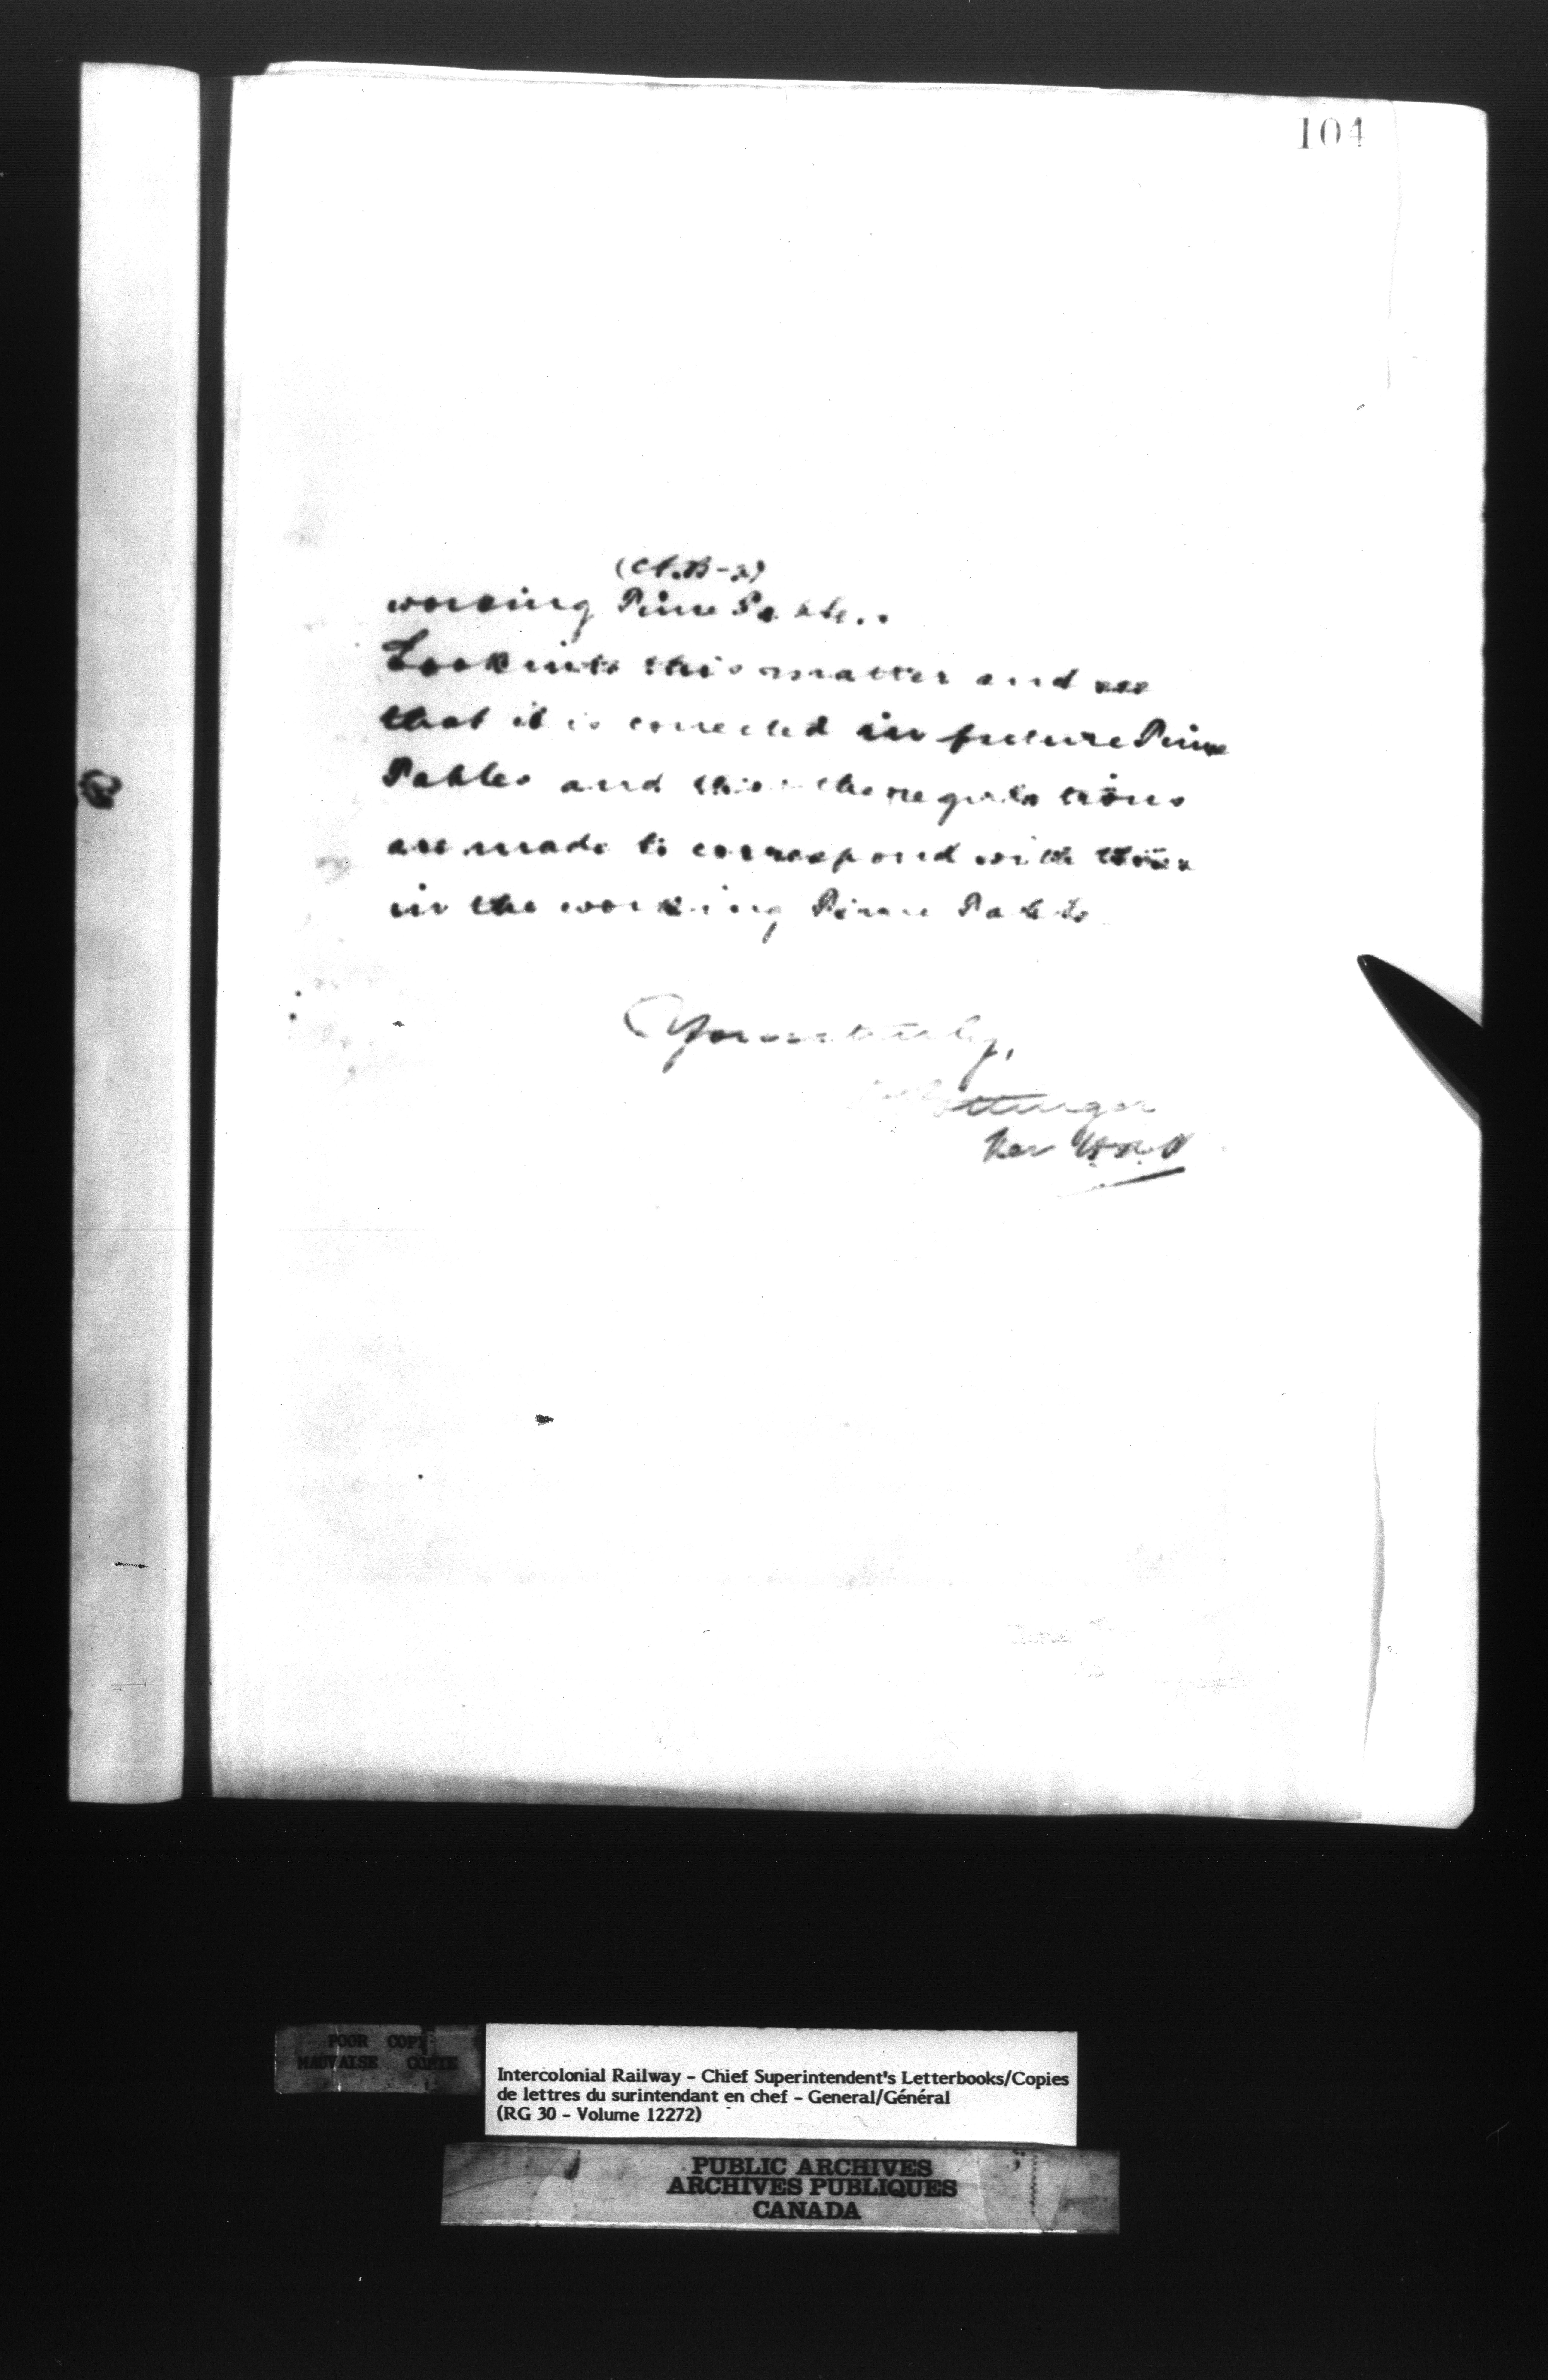 104
working Time Table.
Look into this matter and see
that it is corrected in future Time
Tables and the regulations
are made to correspond with those
in the working Time Table
Yours truly,
Pottinger
Per
POOR COPY
MAUVAISE COPIE
Intercolonial Railway - Chief Superintendent's Letterbooks/Copies
de lettres du surintendant en chef - General/Général
(RG 30 - Volume 12272)
PUBLIC ARCHIVES
ARCHIVES PUBLIQUES
CANADA